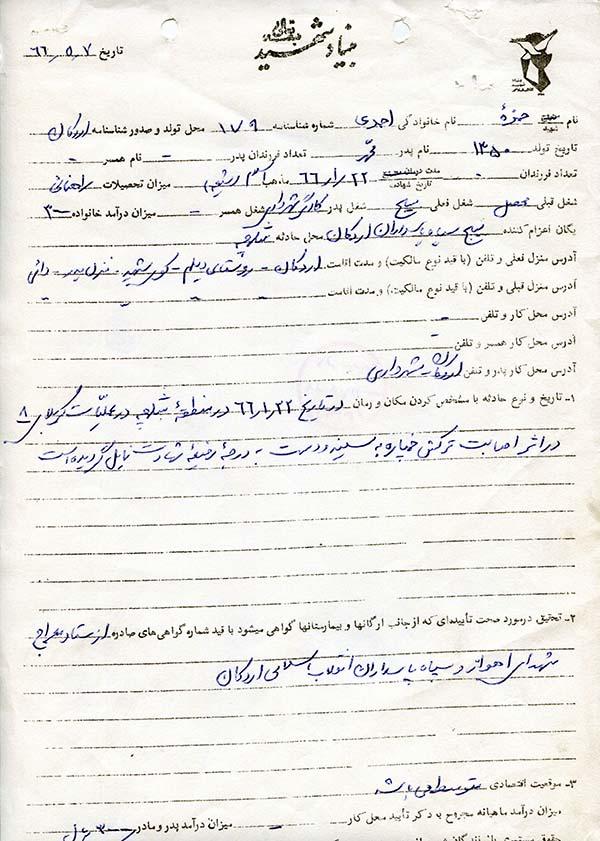 بسمه تعالی
بنیاد شهید
تاریخ ۶۶/۵/۷
نام شهید حمزه نام خانوادگی احمدی شماره شناسنامه ۱۷۹ محل تولد و صدور شناسنامه اردکان
تاریخ تولد ۱۳۵۰ نام پدر تعداد فرزندان پدر - نام همسر -
تعداد فرزندان - تاریخ شهادت ۶۶/۱/۲۲ مذهب اسلام شیعه میزان تحصیلات راهنمائی
شغل قبلی محصل شغل فعلی بسیج شغل پدر کارگر شهرداری شغل همسر - میزان درآمد خانواده
یگان اعزام کننده بسیج سپاه پاسداران اردکان محل حادثه شلمچه
آدرس منزل فعلی و تلفن (با قید نوع مالکیت) و مدت اقامت اردکان - روستای - کوی شهید - منزل پدر - دائی
آدرس منزل قبلی و تلفن (با قید نوع مالکیت) و مدت اقامت - -
آدرس محل کار و تلفن -
آدرس محل کار همسر و تلفن -
آدرس محل کار پدر و تلفن اردکان شهرداری
۱- تاریخ و نوع حادثه با مشخص کردن مکان و زمان در تاریخ ۶۶/۱/۲۲ در منطقه شلمچه در عملیات کربلای ۸
در اثر اصابت ترکش خمپاره به سینه و دست به درجه رفیعه شهادت نایل گردیده است
۲- تحقیق درمورد صحت تأییده‌ای که از جانب ارگانها و بیمارستانها گواهی میشود با قید شماره گواهی‌های صادره از ستاد معراج
شهدای اهواز و سپاه پاسداران انقلاب اسلامی اردکان
۳- موقعیت اقتصادی متوسط می باشد
میزان درآمد ماهیانه مجروح با ذکر تأیید محل کار - میزان درآمد پدر و مادر